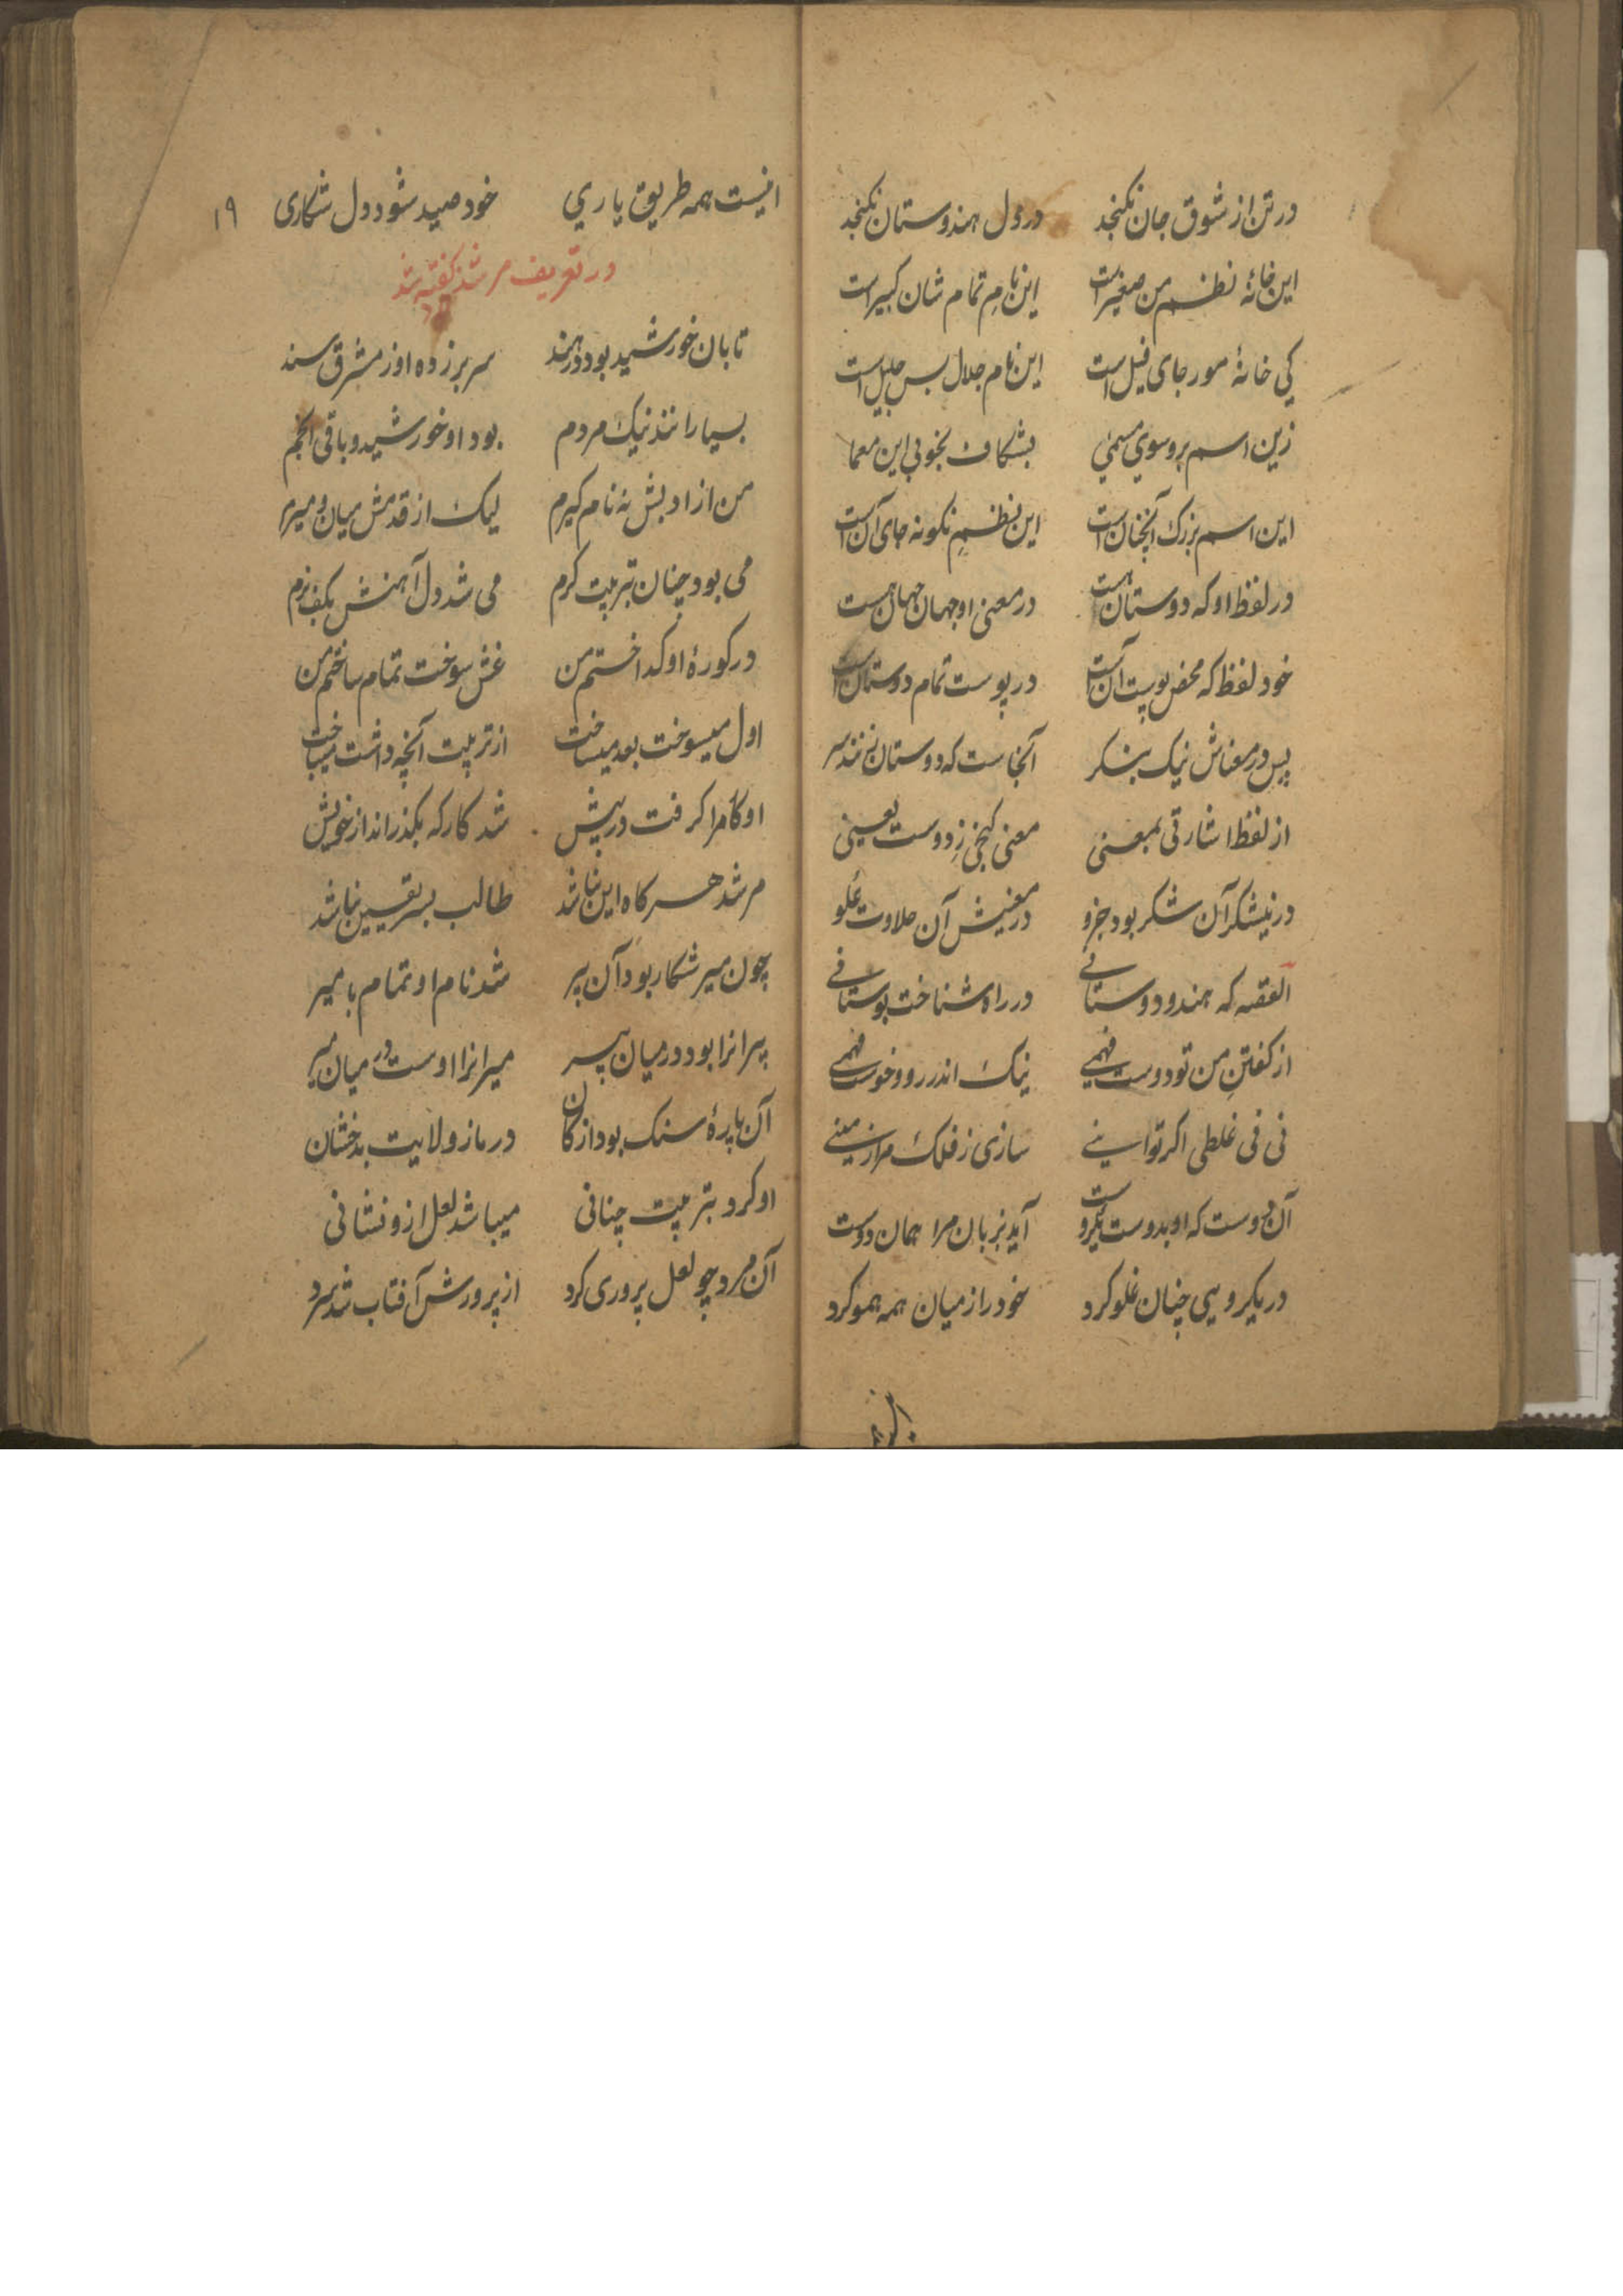 در تن از شوق جان نکنجد در دل هندوستان نکنجد
این خانهٔ نظم من صغیر است این نامِ تمام شان کبیر است
کی خانهٔ مور جای فیل است این نام جلال بس جلیل است
زین اسم برو سوی مسمی بشکاف بخوبی این معما
این اسم بزرک آنچنان است این نظمِ نکونه جای آن است
در لفظ او که دوستان هست در معنی او جهان جهان هست
خود لفظ که محض پوست آن است در پوست تمام دوستان است
پس در معناش نیک بنکر آنجاست که دوستان نهند سر
از لفظ اشارتی بمعنی معنی کنجی زِ دوست یعنی
در نیشکر آن شکر بود جزو در معنیش آن حلاوت غلو
القصه که هندو دوستانی در راه شناخت بوستانی
از کفتنِ من تو دوست فهمی نیک اندر رو و خوست فهمی
نی نی غلطی اکر تو اینی سازی ز فلک مرا زمینی
آن دوست که او بدوست یکروست آید بزبان مرا همان دوست
در یکرویی چنان غلو کرد خود را ز میان همه همو کرد
اینست همه طریق یاری خود صید شود دل شکاری ۱۹
در تعریف مرشد کفته شد
تابان خورشید بود در هند سر بر زده او ز مشرق سند
بسیارانند نیک مردم بود او خورشید و باقی انجم
من از ادبش نه نام کیرم لیک از قدمش میان و میرم
می بود چنان تبربیت کرم می شد دل آهنش بکف نرم
در کورهٔ او کداختم من غش سوخت تمام ساختم من
اول میسوخت بعد میساخت از تربیت آنچه داشت میباخت
او کامرا کرفت در پیش شد کار که بکذراند از خویش
مرشد هر کاه این نباشد طالب بسر یقین نباشد
چون میر شکار بود آن پیر شد نام او تمام با میر
پیرانرا بود در میان پیر میرانرا اوست در میان میر
آن پارهٔ سنک بود از کان در ماز ولایت بدخشان
او کرد بتربیت چنانی میباشد لعل ازو نشانی
آن مرد چو لعل پروری کرد از پرورش آفتاب شد سرد